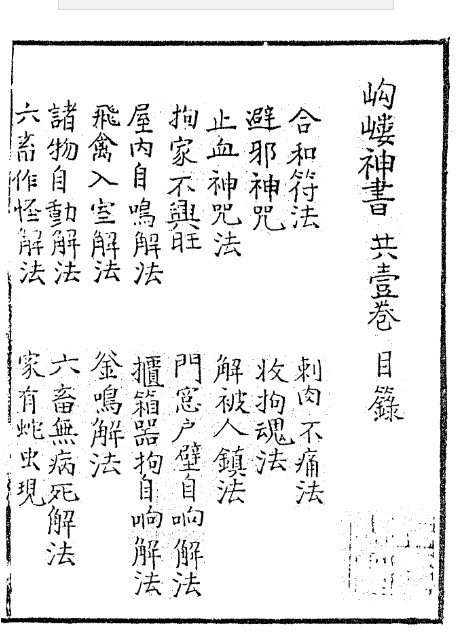 岣嶁神書 共壹卷 目錄
合和符法 刺肉不痛法
避邪神咒 收拘魂法
止血神咒法 解被人鎮法
拘家不興旺 門窓户壁自响解法
屋内自鳴解法 櫃箱器拘自响解法
飛禽入室解法 釜鳴解法
諸物自動解法 六畜無病死解法
六畜作怪解法 家有蛇虫現